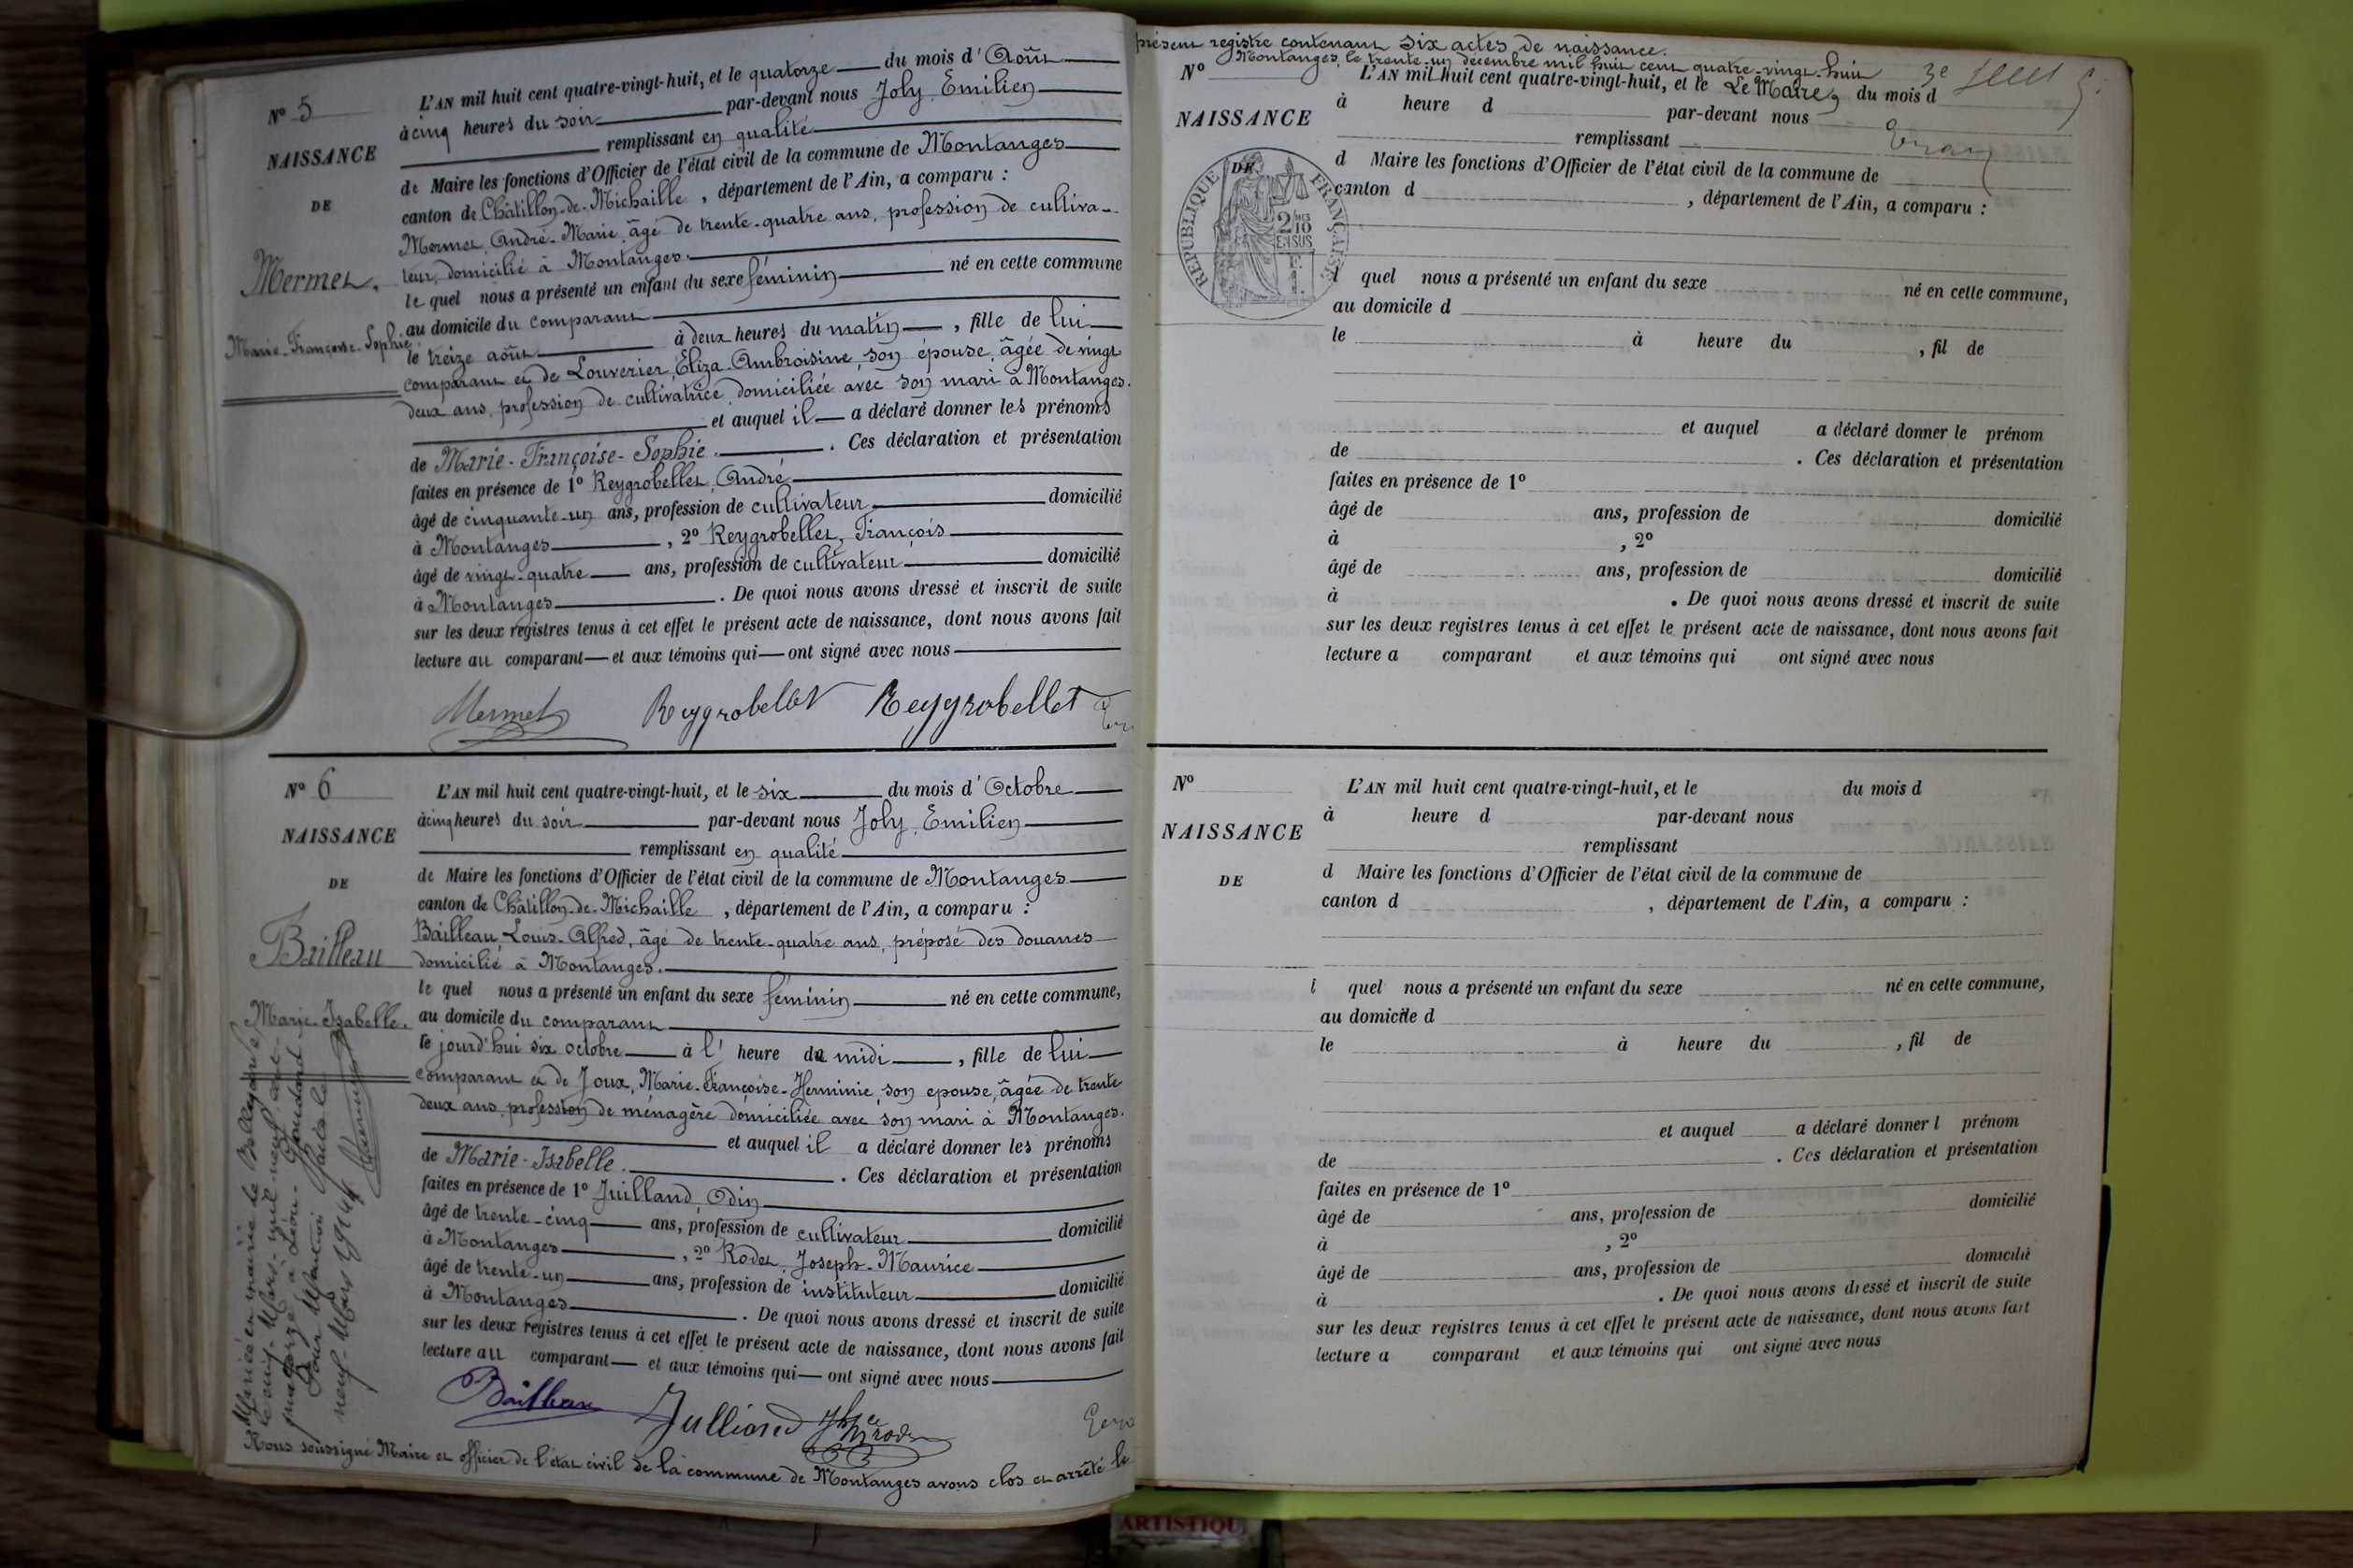 N° 5
NAISSANCE
DE
Mermet.
Marie-Françoise-Sophie.
L'AN mil huit cent quatre-vingt-huit, et le quatorze du mois d'Août
à cinq heures du soir par-devant nous Joly, Emilien
remplissant en qualité
de Maire les fonctions d'Officier de l'état civil de la commune de Montanges
canton de Châtillon-de-Michaille, département de l'Ain, a comparu :
Mermet, André-Marie, âgé de trente-quatre ans, profession de cultiva-
teur, domicilié à Montanges.
le quel nous a présenté un enfant du sexe féminin né en cette commune
au domicile du comparant
le treize août à deux heures du matin, fille de lui
comparant et de Louverier, Eliza-Ambroisine, son épouse, âgée de vingt
deux ans, profession de cultivatrice, domiciliée avec son mari à Montanges.
et auquel il a déclaré donner les prénoms
de Marie-Françoise-Sophie. Ces déclaration et présentation
faites en présence de 1° Reygrobellet, André
âgé de cinquante-un ans, profession de cultivateur domicilié
à Montanges, 2° Reygrobellet, François
âgé de vingt-quatre ans, profession de cultivateur domicilié
à Montanges. De quoi nous avons dressé et inscrit de suite
sur les deux registres tenus à cet effet le présent acte de naissance, dont nous avons fait
lecture au comparant et aux témoins qui ont signé avec nous
Mermet Reygrobellet Reygrobellet
N° 6
NAISSANCE
DE
Bailleau
Marie-Isabelle.
L'AN mil huit cent quatre-vingt-huit, et le six du mois d'Octobre
à cinq heures du soir par-devant nous Joly, Emilien
remplissant en qualité
de Maire les fonctions d'Officier de l'état civil de la commune de Montanges
canton de Châtillon-de-Michaille, département de l'Ain, a comparu :
Bailleau, Louis-Alfred, âgé de trente-quatre ans, préposé des douanes
domicilié à Montanges.
le quel nous a présenté un enfant du sexe féminin né en cette commune,
au domicile du comparant
le jourd'hui six octobre à l'heure de midi, fille de lui
comparant et de Joux, Marie-Françoise-Herminie, son epouse, âgée de trente
deux ans, profession de ménagère domiciliée avec son mari à Montanges.
et auquel il a déclaré donner les prénoms
de Marie-Isabelle. Ces déclaration et présentation
faites en présence de 1° Juilland, Odin
âgé de trente-cinq ans, profession de cultivateur domicilié
à Montanges, 2° Rodet, Joseph-Maurice
âgé de trente-un ans, profession de instituteur domicilié
à Montanges. De quoi nous avons dressé et inscrit de suite
sur les deux registres tenus à cet effet le présent acte de naissance, dont nous avons fait
lecture au comparant et aux témoins qui ont signé avec nous
Bailleau Julliand
Mariée en mairie de Bellegarde
le neuf Mars mil neuf cent
quatorze à Léon
Pour Mention faite le
neuf Mars 1914
Nous soussigné Maire et officier de l'état civil de la commune de Montanges avons clos et arrêté le
présent registre contenant six actes de naissance.
Montanges, le trente-un décembre mil huit cent quatre-vingt-huit
Le Maire,
N°
NAISSANCE
DE
RÉPUBLIQUE FRANÇAISE
2/10 EN SUS
F.
1.
L'AN mil huit cent quatre-vingt-huit, et le du mois d
à heure d par-devant nous
remplissant
d Maire les fonctions d'Officier de l'état civil de la commune de
canton d , département de l'Ain, a comparu :
l quel nous a présenté un enfant du sexe né en cette commune,
au domicile d
le à heure du , fil de
et auquel a déclaré donner le prénom
de . Ces déclaration et présentation
faites en présence de 1°
âgé de ans, profession de domicilié
à , 2°
âgé de ans, profession de domicilié
à . De quoi nous avons dressé et inscrit de suite
sur les deux registres tenus à cet effet le présent acte de naissance, dont nous avons fait
lecture a comparant et aux témoins qui ont signé avec nous
N°
NAISSANCE
DE
L'AN mil huit cent quatre-vingt-huit, et le du mois d
à heure d par-devant nous
remplissant
d Maire les fonctions d'Officier de l'état civil de la commune de
canton d , département de l'Ain, a comparu :
l quel nous a présenté un enfant du sexe né en cette commune,
au domicile d
le à heure du , fil de
et auquel a déclaré donner l prénom
de . Ces déclaration et présentation
faites en présence de 1°
âgé de ans, profession de domicilié
à , 2°
âgé de ans, profession de domicilié
à . De quoi nous avons dressé et inscrit de suite
sur les deux registres tenus à cet effet le présent acte de naissance, dont nous avons fait
lecture a comparant et aux témoins qui ont signé avec nous
ARTISTIQU